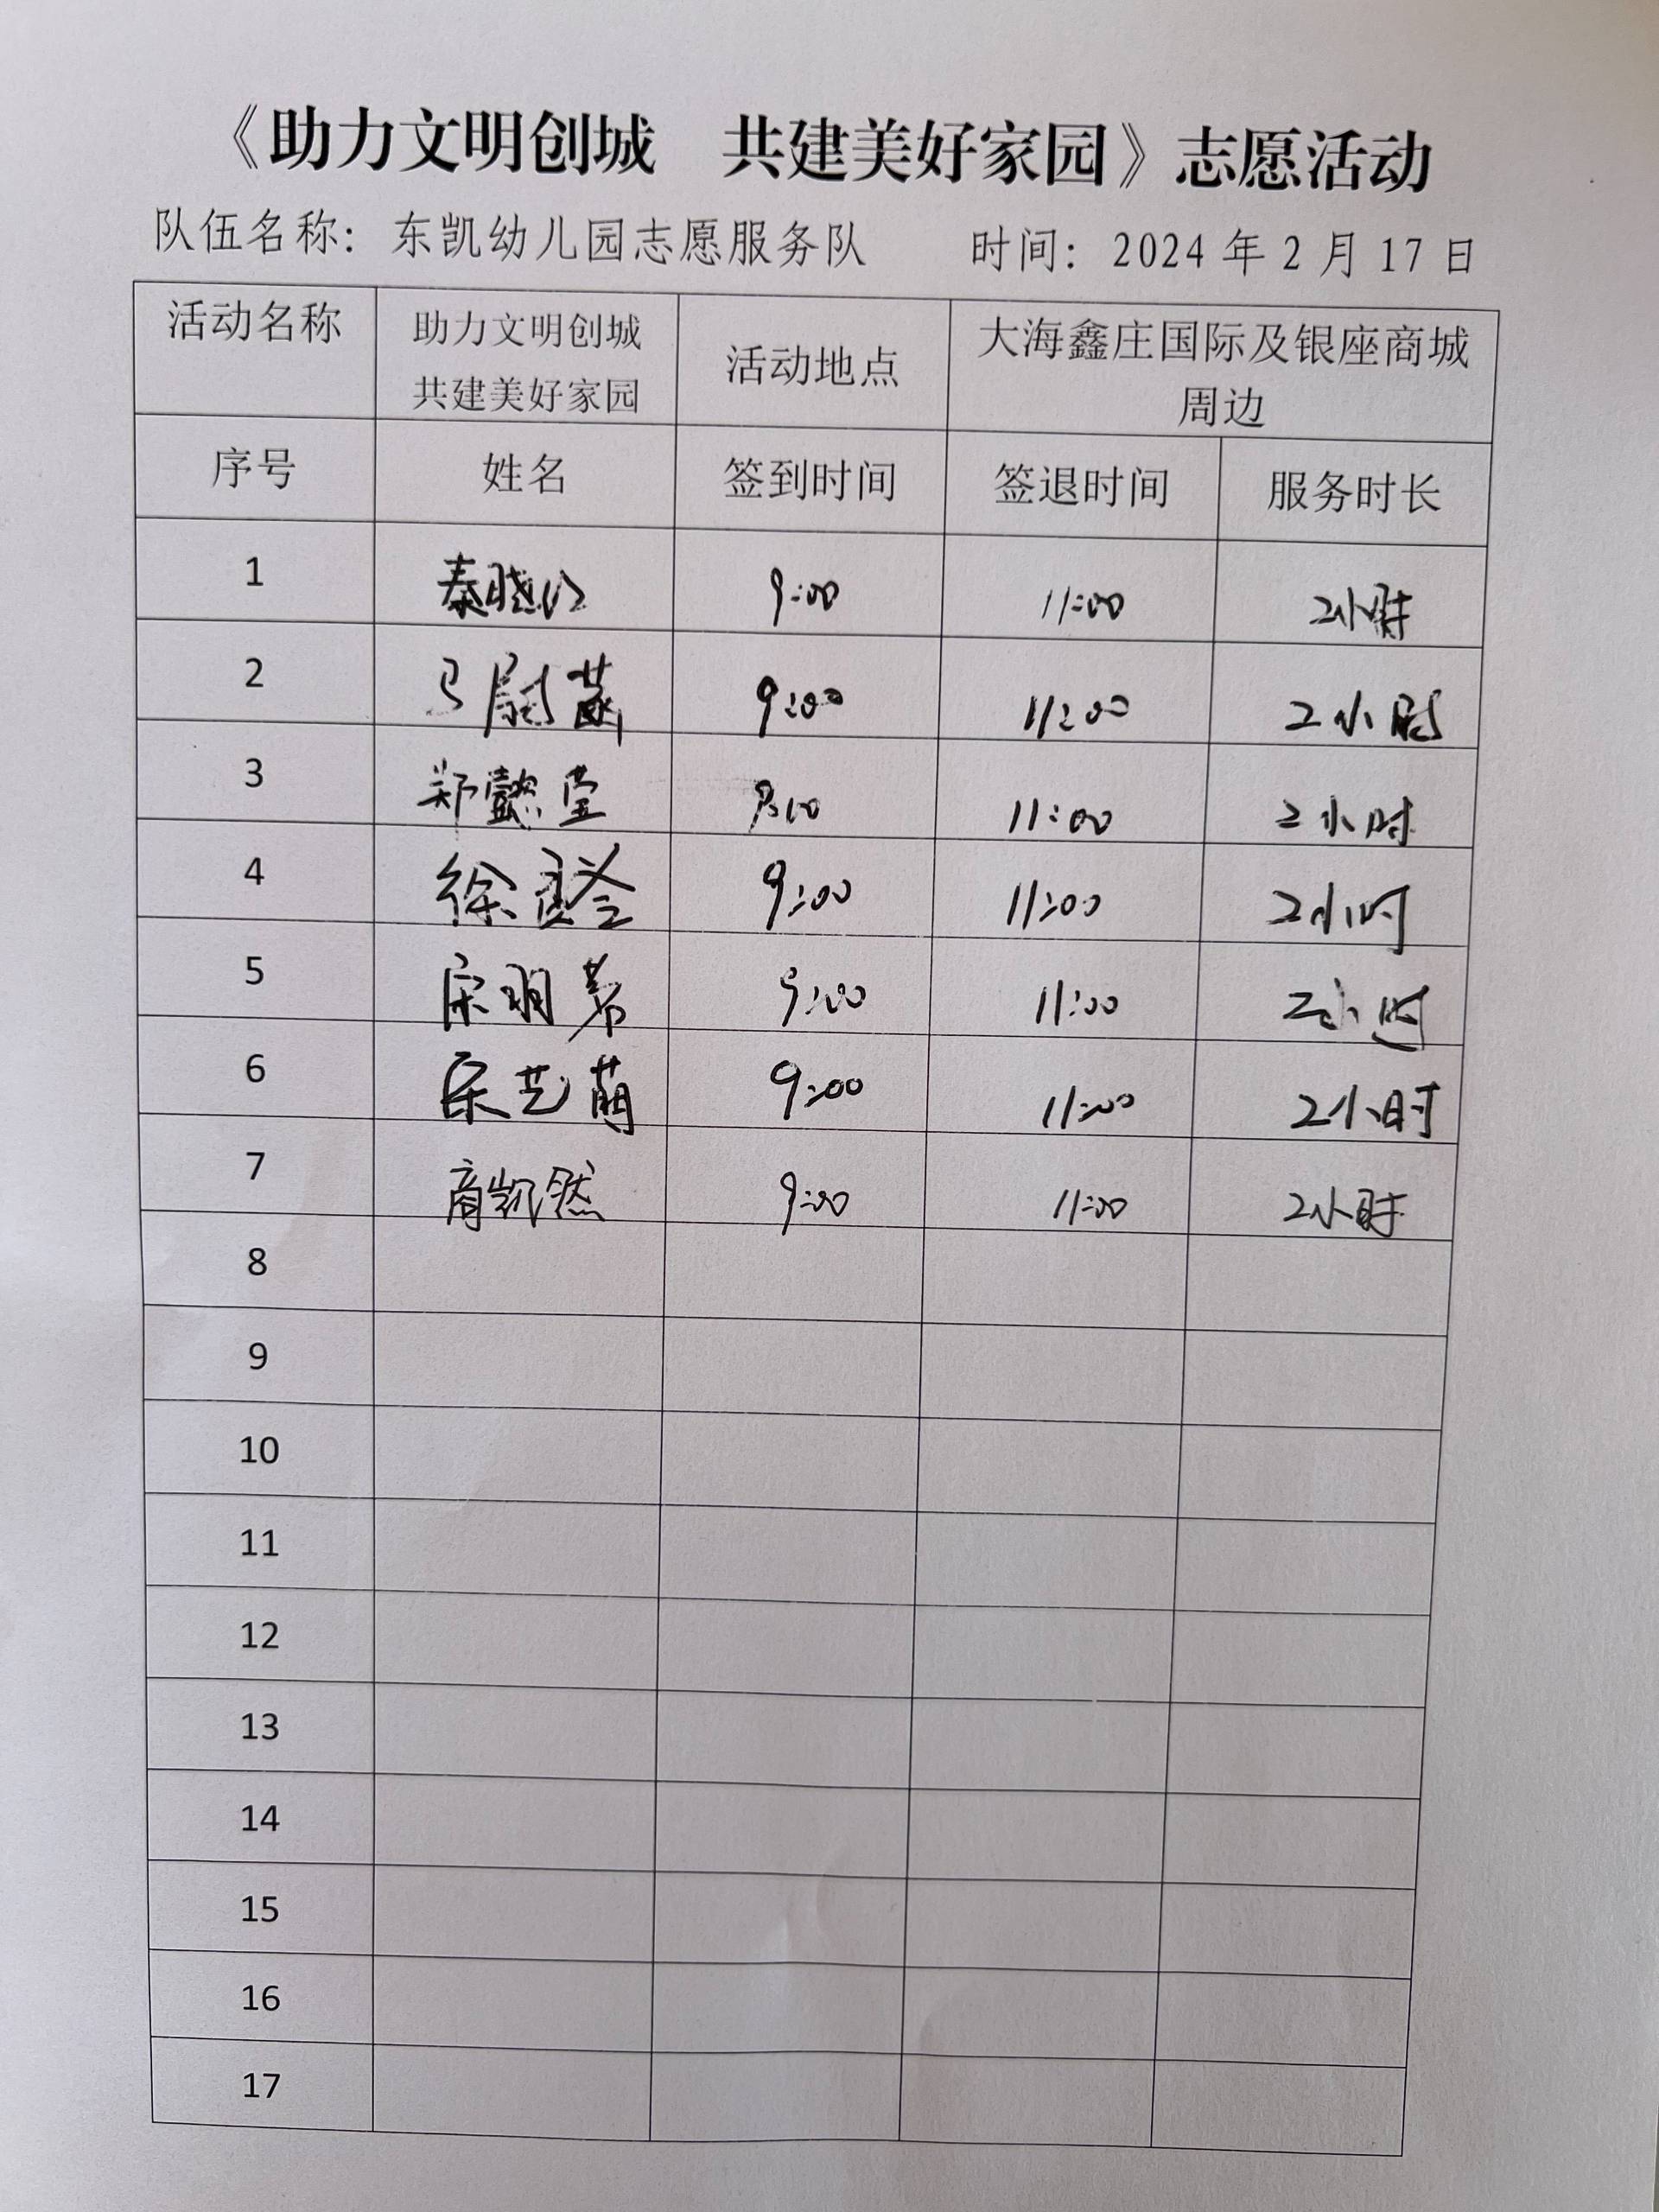 《助力文明创城 共建美好家园》志愿活动
队伍名称：东凯幼儿园志愿服务队 时间：2024 年 2 月 17 日
活动名称 助力文明创城 共建美好家园 活动地点 大海鑫庄国际及银座商城周边
序号 姓名 签到时间 签退时间 服务时长
1 秦晓 9:00 11:00 2小时
2 马尉菡 9:00 11:00 2小时
3 郑懿莹 11:00 2小时
4 徐 9:00 11:00 2小时
5 宋明希 9:00 11:00 2小时
6 宋艺萌 9:00 11:00 2小时
7 商凯然 9:00 11:00 2小时
8
9
10
11
12
13
14
15
16
17